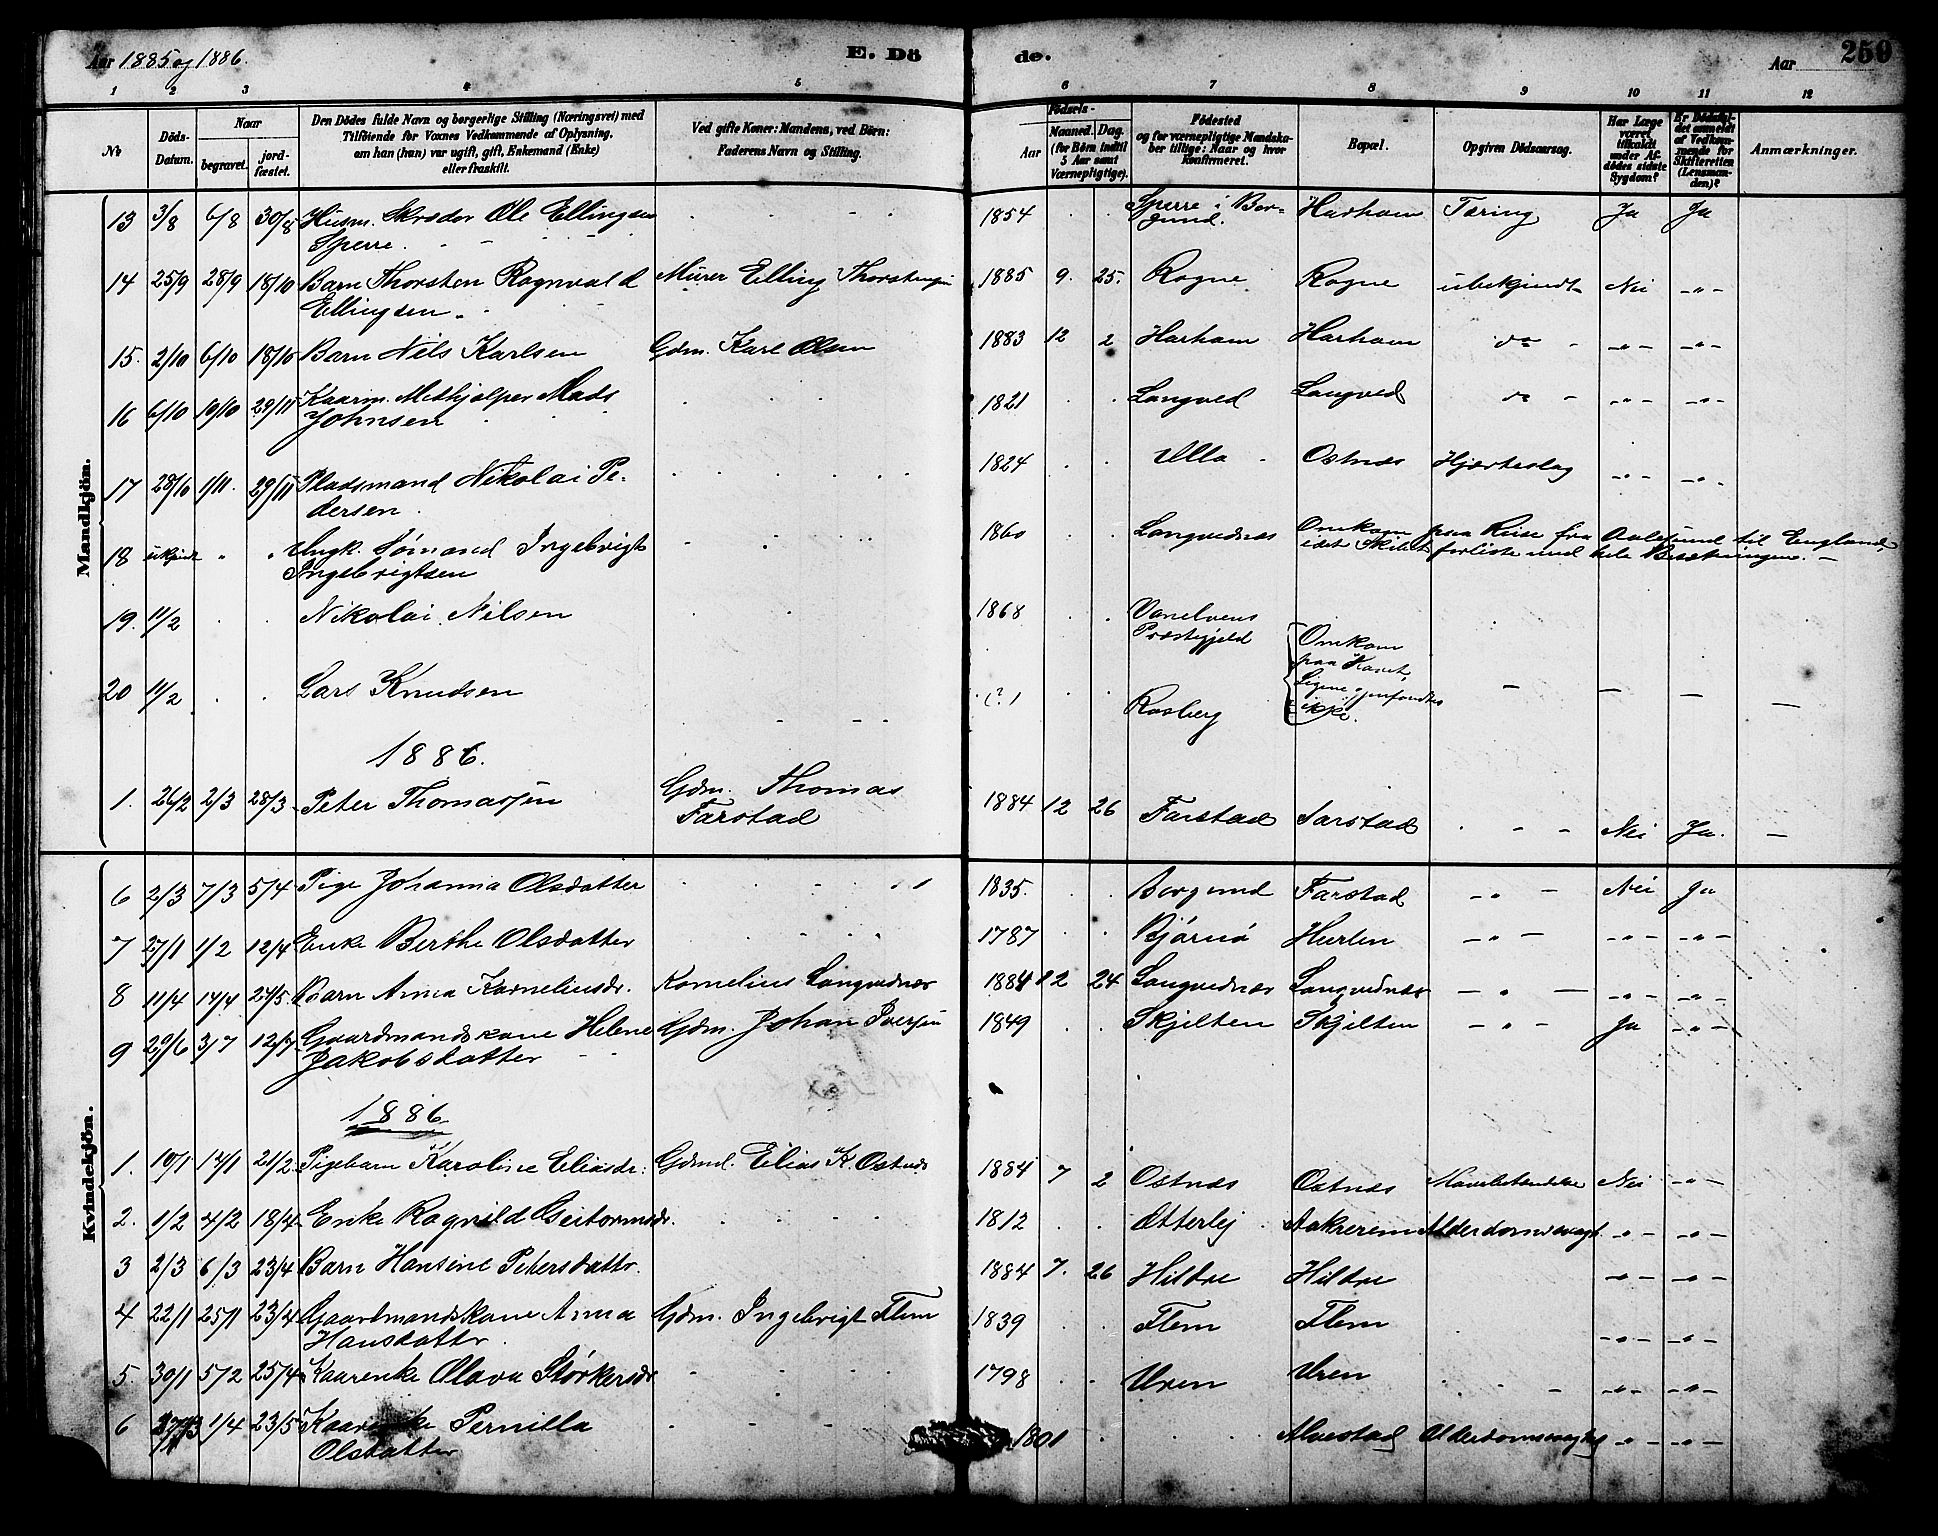 Aar 1885 og 1886.
E. Dö
de.
Aar
250
1 2 3 4 5 6 7 8 9 10 11 12
No
Döds-Datum.
Naar
begravet.
jord-fæstet.
Den Dödes fulde Navn og borgerlige Stilling (Næringsvei) med
Tilföiende for Voxnes Vedkommende af Oplysning,
om han (hun) var ugift, gift, Enkemand (Enke)
eller fraskilt.
Ved gifte Koner: Mandens, ved Börn:
Faderens Navn og Stilling.
Födsels-
Aar
Maaned. Dag.
(for Börn indtil
5 Aar samt
Værnepligtige).
Födested
og for værnepligtige Mandska-
ber tillige: Naar og hvor
Konfirmeret.
Bopæl.
Opgiven Dödsaarsag.
Har Læge
været
tilkaldt
under Af-
dödes sidste
Sygdom?
Er Dödsfal-
det anmeldt
af Vedkom-
mende for
Skifteretten
(Lensman-
den)?
Anmærkninger.
Mandkjön.
13 3/8 6/8 30/8 Husm. Skræder Ole Ellingsen 1854 Sperre i Bor- Harham Tæring Ja Ja
Sperre. gund.
14 25/9 28/9 18/10 Barn Thorsten Rognvald Murer Elling Thorstensen 1885 9. 25. Rogne Rogne ubekjendt Nei -"-
Ellingsen.
15. 2/10 6/10 18/10 Barn Nils Karlsen Gdm. Karl Olsen 1883 12 2 Harham Harham do - -"- -"-
16 6/10 10/10 29/11 Kaarm. Medhjælper Mads 1821 Longved Longved do - -"- -"-
Johnsen
17 28/10 1/11. 29/11 Pladsmand Nikolai Pe- 1824 Ulla Ostnæs Hjerteslag -"- -"-
dersen.
18 " " Ungk. Sømand Ingebrigt 1860 Longvednæs Omkom paa Reise fra Aalesund til England,
Ingebrigtsen idet Skibet forliste med hele Besætningen. -
19. 11/2 Nikolai Nilsen 1868 Vanelvens
Præstegjeld
Omkom
paa Havet,
Ligene gjenfandtes
ikke.
20 11/2 Lars Knudsen (?) Rasberg - - - -
1886.
1. 26/2 2/3 28/3 Peter Thomassen Gdm. Thomas 1884 12 26 Farstad Farstad - - Nei Ja. -
Farstad
Kvindekjön.
6 2/3 7/3 5/4 Pige Johanna Olsdatter 1835. Borgund Farstad -"- Nei Ja
7 27/1 1/2 12/4 Enke Berthe Olsdatter 1787 Bjørnö Hurlen -"- -"- -"-
8 11/4 17/4 27/5. Barn Anna Kornelinsdr. Kornelius Longvednæs 1884 12 24 Longvednæs Longvednæs -"- -"- -"-
9 29/6 3/7 12/7 Gaardmandskone Helene Gdm. Johan Iversen 1849 Skjelten Skjelten -"- Ja -"-
Jakobsdatter
1886
1. 10/1 17/1 21/2 Pigebarn Karoline Eliasdr. Gdmd. Elias K. Ostnæs 1884 7 2 Ostnæs Ostnæs Mavebetændelse Nei -"-
2. 1/2 7/2 18/4 Enke Ragnild Geitormsdr. 1812 Otterlej Aakrerem Alderdomssvagh. -"- -"-
3 2/3 6/3 23/4 Barn Hansine Petersdattr. 1884 7. 26 Hildre Hildre -"- -"-
4 22/1 25/1 23/4 Gaardmandskone Anna Gdm. Ingebrigt Flem 1839 Flem Flem -"- -"-
Hansdattr
5 30/1 5/2 25/4 Kaarenke Olava Størkersdr 1798 Uren Uren -"- -"-
6 1/4 23/5 Kaarenke Pernilla 1801 Alvestad Alderdomssvaghed -"- -"-
Olsdatter